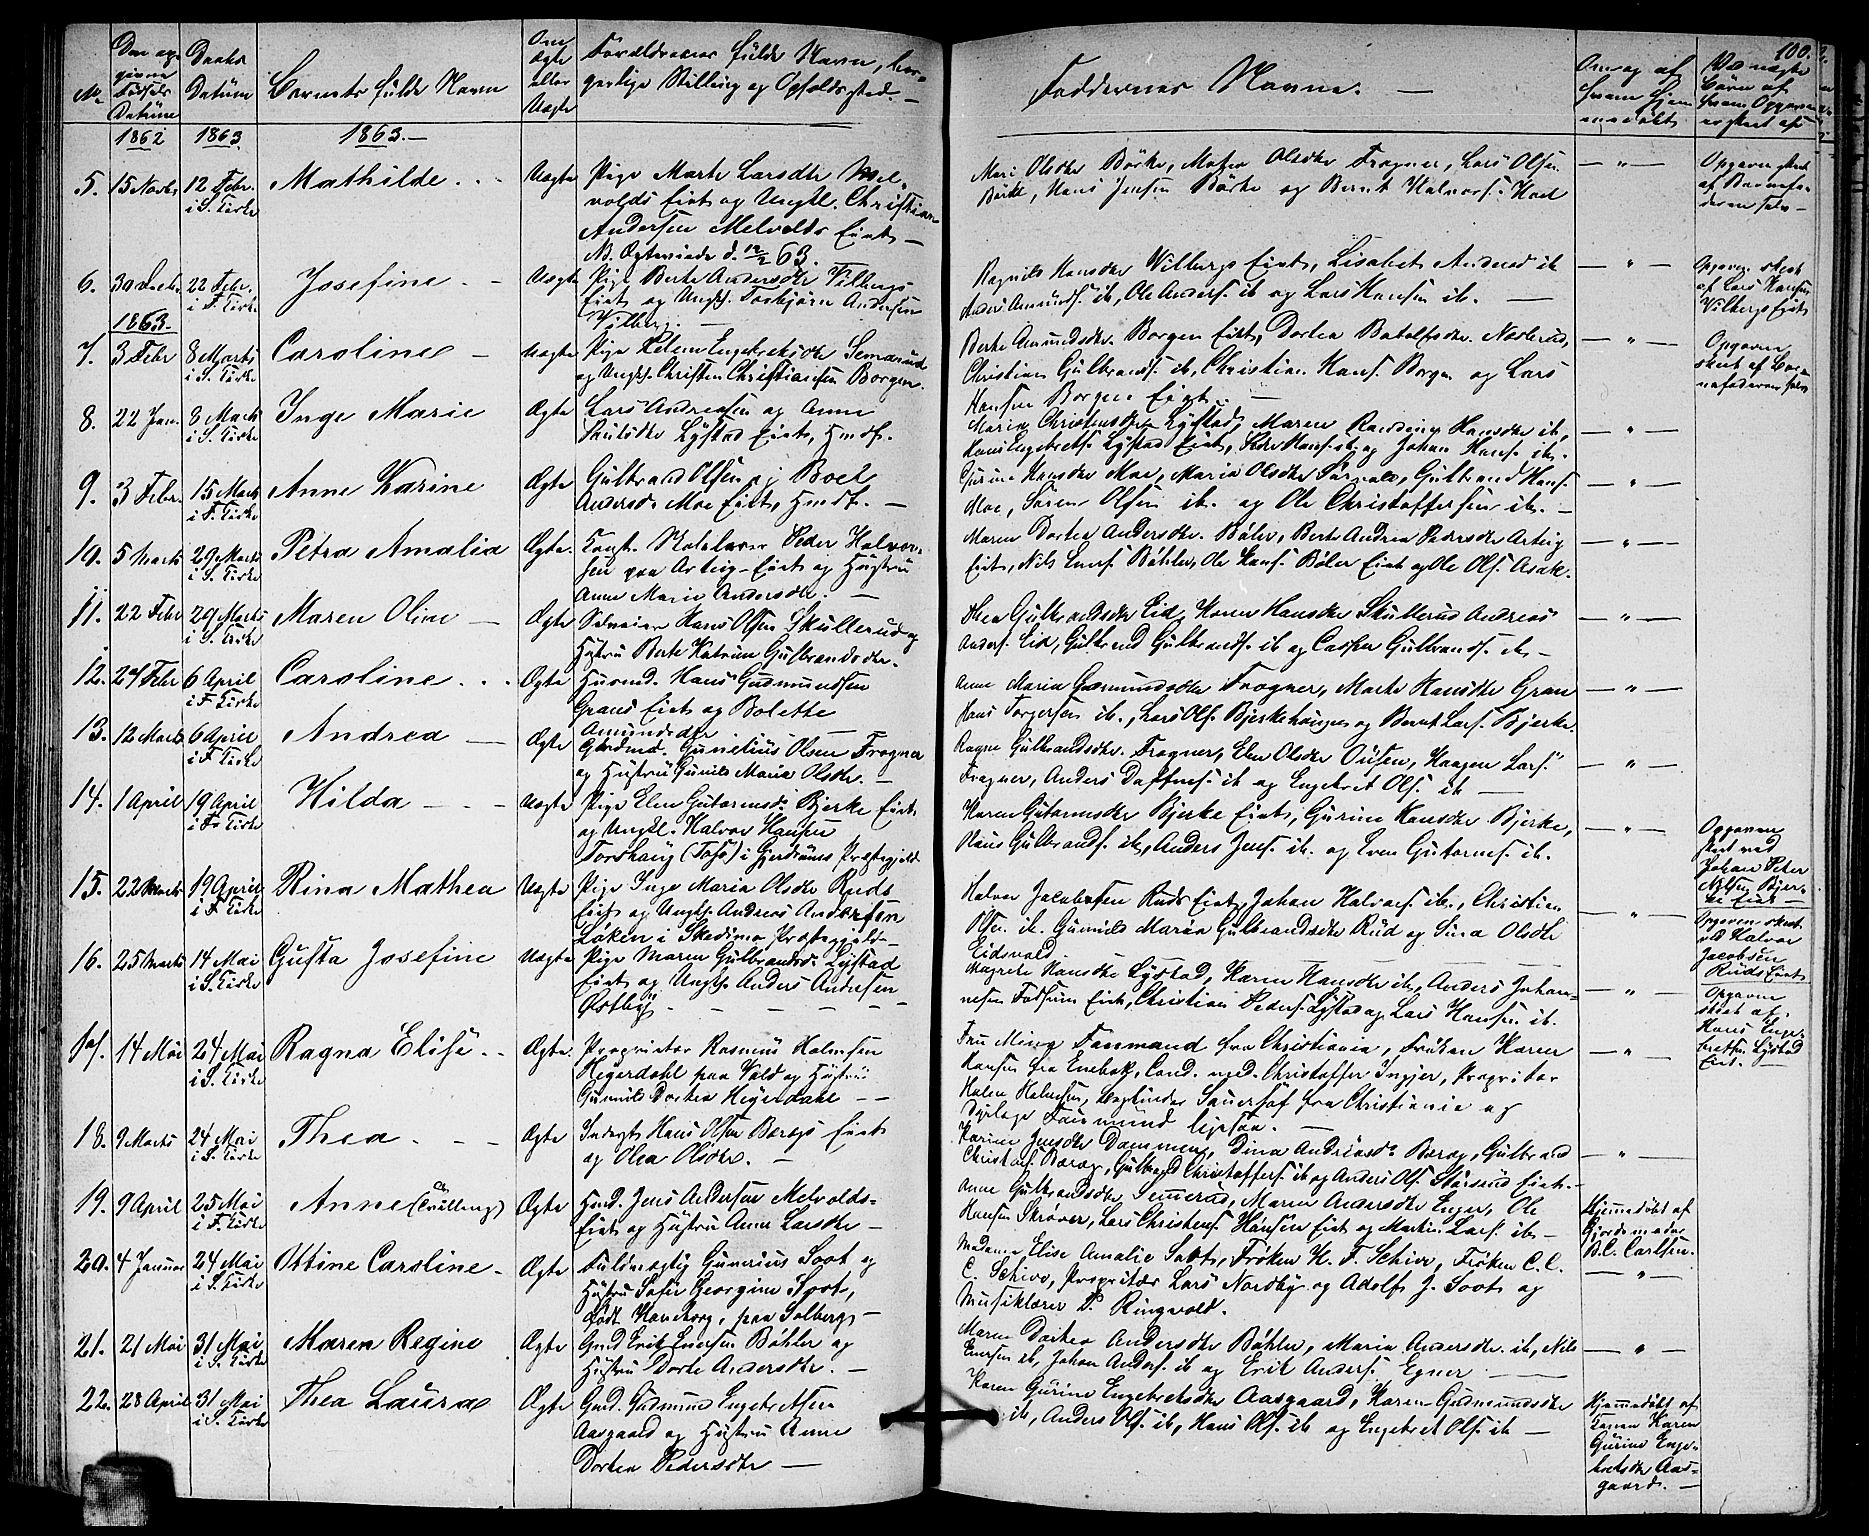 100.
No
Den opgivne Fødsels Datum
Daabs Datum
Barnets fulde Navn
Om Ægte eller Uægte
Forældrenes fulde Navn, borgerlige Stilling og Opholdssted. —
Faddernes Navne. —
Om og af hvem hjemmedøbt
1862 1863 1863. —
5. 15 Novbr 12 Febr. i S. Kirke Mathilde Uægte
Pige Marte Larsdtr Melvolds Eiet og Ungkl. Christian
Andersen Melvolds Eiet —
NB. Ægteviede d. 12/2 63.
Mari Olsdtr Børke, Olsdtr Frogner, Lars Olsen
Børke, Hans Jensen Børke og Bernt Halvors.
Opgaven skeet
af Barnefaderen selv —
6. 30 Decbr. 22 Febr. i F. Kirke Josefine Uægte
Pige Berte Andersdtr Vilbergs
Eiet og Ungk. Torbjørn Andersen
Vilberg. —
Ragnild Hansdtr Vilbergs Eiet, Lisabet ib
Amunds. ib, Ole Anders. ib og Lars Hansen ib. —
Opgaven skeet
af Lars Hansen
Vilbergs Eiet
1863.
7. 3 Febr 8 Marts i S. Kirke Caroline — Uægte
Pige Helene Engebretsdtr Semerud
og Ungk. Christen Christiansen Borgen.
Berte Amundsdtr. Borgen Eiet, Dortea Norderud,
Christian Gulbrands. ib, Christian Hans. Borgen og Lars
Hansen Borgens Eiet. —
Opgaven
skeet af Barnefaderen selv
8. 22 Jan. 8 Marts i S. Kirke Inge Marie Ægte
Lars Andreasen og Anne
Paulsdtr Lystad Eiet, Hmdf.
Marie Christensdtr Lystad, Maren Randine Hansdtr ib,
Hans Engebrets. Lystad Eiet, Hans. ib og Johan Hans. ib.
9. 3 Febr. 15 Marts i F. Kirke Anne Karine Ægte
Gulbrand Olsen og Boel
Andersd. Moe Eiet, Hmdf. —
Gurine Hansdtr Moe, Maria Olsdtr Gulbrand Hans.
Moe, Søren Olsen ib. og Ole Christoffersen ib. —
10. 5 Marts 29 Marts i S. Kirke Petra Amalia Ægte.
Skolelærer Peder Halvorsen paa Arteig-Eiet og Hustru
Anne Marie Andersdtr. —
Maren Dortea Andersdtr. Bøler, Berte Andrea Pedersdtr Arteig
Eiet, Nils Iver. Bøhler, Ole Hans. Bøler Eiet og Ole Ols. Asak.
11. 22 Febr 29 Marts i S. Kirke Maren Oline — Ægte
Selveier Hans Olsen Skullerud og
Hustru Berte Katrine Gulbrandsdtr.
Thea Gulbrandsdtr Eid, Karen Hansdtr Skullerud Andreas
Anders. Eid, Gulbrand Gulbrands. ib og Casper Gulbrands. ib —
12. 24 Febr 6 April i F Kirke Caroline Ægte
Husmd. Hans Gudmundsen
Grans Eiet og Bolette
Amundsdtr
Anne Maria Gudmundsdtr Frogner, Marte Hansdtr Gran
Hans Torgersen ib., Lars Ols. Bjerkehaugen og Bernt Lars. Bjerke.
13. 12 Marts 6 April i F Kirke Andrea — Ægte
Gaardmd. Gunelius Olsen Frogner
og Hustru Gunild Marie Olsdtr. —
Ragne Gulbrandsdtr. Frogner, Elen Olsdtr Haagen Lars.
Frogner, Anders ib og Engebret Ols. ib —
14. 1 April 19 April i Fr Kirke Hilda — Uægte
Pige Elen Gutormsd. Bjerke Eiet,
og Ungkl. Halvor Hansen
Torshaug (Tofs) i Gjerdrums Præstegjeld
Karen Gutormsdtr Bjerke Eiet, Gurine Hansdtr Bjerke,
Hans Gulbrands. ib, Anders Jens. ib. og Even Gutorms. ib.
Opgaven
skeet ved
Johan Peter
Nilsen Bjerke Eiet —
15. 22 Marts 19 April i F Kirke Rina Mathea Uægte
Pige Inge Maria Olsdtr Ruds
Eiet og Ungk. Andreas Andersen
Løken i Skedsmo Præstegjeld —
Halvor Jacobsen Ruds Eiet, Johan Halvors. ib., Christian
Olsen ib. Gunild Maria Gulbrandsdtr Rud og Olsdtr
Eidsvold. —
Opgaven skeet
ved Halvor
Jacobsen
Ruds Eiet
16. 25 Marts 14 Mai i S. Kirke Gusta Josefine Uægte
Pige Maren Gulbrandsd. Lystad
Eiet og Ungk. Anders Andersen
Østby —
Magrete Hansdtr Lystad, Karen Hansdtr ib, Anders Johannesen Fossum Eiet, Christian Peders. Lystad og Lars Hansen ib.
Opgaven
skeet af
Hans Engebretsen Lystad
Eiet. —
17. 14 Mai 24 Mai i S. Kirke Ragna Elise Ægte.
Proprietær Rasmus Halmsen
Hejerdahl paa Vold og Hustru
Gunild Dortea Hejerdahl —
Fru Mina Faremand fra Christiania, Frøken Karen
Hansen fra Enebak, Cand. med. Christoffer Ingjer, Proprietær
Halmsen, fra Christiania og
18. 9 Marts 24 Mai i S. Kirke Thea Ægte
Inderst Hans Olsen Beregs Eiet
og Olea Olsdtr. —
Karine Jensdtr Dammeng, Dina Andreasd. Bereg, Gulbrand
Christof. Bereg, Gulbrand Christoffers. ib og Anders Ols. Eiet —
19. 9 April 25 Mai i F. Kirke Anne (Tvilling) Ægte
Husmd. Jens Andersen Melvolds-
Eiet og Hustru Anne Larsdtr —
Anne Gulbrandsdtr Semerud, Maren Andersdtr Enger, Ole
Hansen Skrøver, Lars Christens. Eiet og Martin Lars. ib. —
Hjemmedøbt af
Gjordemoder
B.C. Carlsen.
20. 4 Januar 24 Mai i S. Kirke Ottine Caroline — Ægte
Fuldmægtig Gunerius Soot og
Hustru Sofie Georgine Soot,
født paa Solberg —
Madame Elise Amalie Soot, Frøken H. F. Schive, Frøken C. C.
C. Schive, Proprietær Lars Nordby og Adolf J. Soot og
Musiklærer P. Ringvold.
21. 21 Mai 31 Mai i S. Kirke Maren Regine Ægte
Gmd. Erik Iversen Bøhler og
Hustru Dorte Andersdtr. —
Maren Dortea Andersdtr Bøhler, Maria Andersdtr. ib, Nils
Iversen ib, Johan Anders. ib og Erik Anders. Egner —
22. 28 April 31 Mai i S. Kirke Thea Laura Ægte
Gmd. Gudmund Engebretsen
Aasgaard og Hustru Anne
Dortea Pedersdtr —
Karen Gurine Engebretsdtr Aasgaard, Karen Gudmundsdtr
ib, Anders Ols. ib, Hans Ols. ib og Engebret Ols. ib —
Hjemmedøbt af
Karen
Gurine Engebretsdtr Aasgaard. —